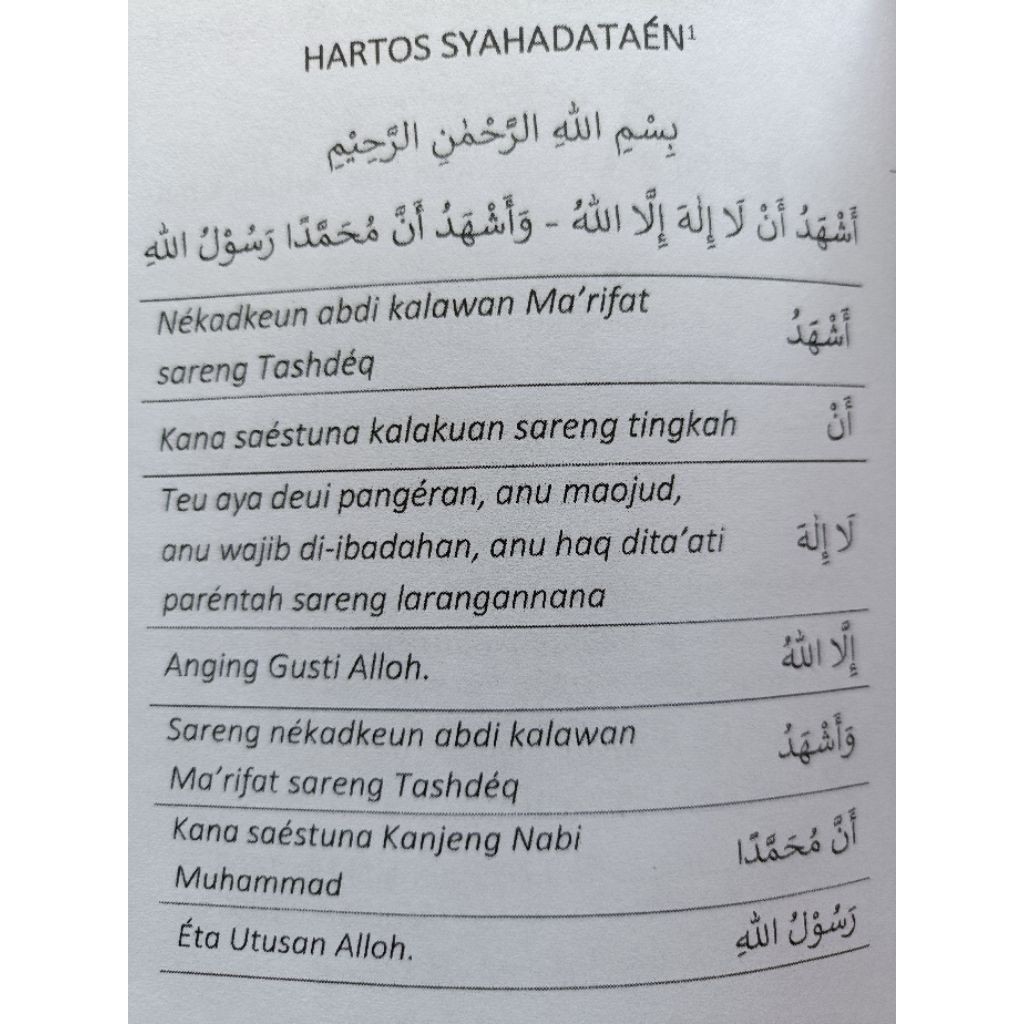 HARTOS SYAHADATAÉN¹
بِسْمِ اللهِ الرَّحْمٰنِ الرَّحِيْمِ
أَشْهَدُ أَنْ لَا إِلٰهَ إِلَّا اللهُ - وَأَشْهَدُ أَنَّ مُحَمَّدًا رَسُوْلُ اللهِ
Nékadkeun abdi kalawan Ma’rifat أَشْهَدُ
sareng Tashdéq
Kana saéstuna kalakuan sareng tingkah أَنْ
Teu aya deui pangéran, anu maojud,
anu wajib di-ibadahan, anu haq dita’ati لَا إِلٰهَ
paréntah sareng larangannana
Anging Gusti Alloh. إِلَّا اللهُ
Sareng nékadkeun abdi kalawan وَأَشْهَدُ
Ma’rifat sareng Tashdéq
Kana saéstuna Kanjeng Nabi أَنَّ مُحَمَّدًا
Muhammad
Éta Utusan Alloh. رَسُوْلُ اللهِ